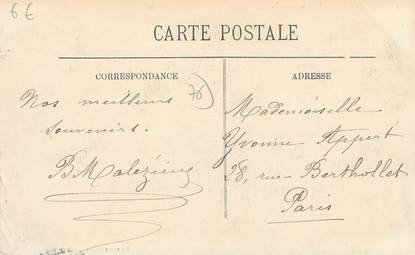 6€
CARTE POSTALE
CORRESPONDANCE
ADRESSE
Nos meilleurs
souvenirs.
B Malézieux
78
Mademoiselle
Yvonne Appert
28, rue Berthollet
Paris